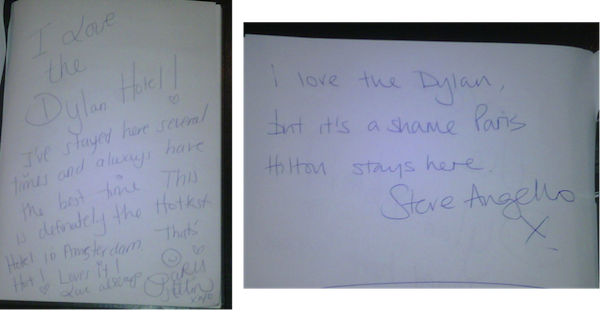 I Love
the
Dylan Hotel!
I've stayed here several
times and always have
the best time. This
is definately the Hottest
Hotel in Amsterdam. That's
Hot! Loves it!
Love always Paris
Hilton
xoxo
I love the Dylan,
but it's a shame Paris
Hilton stays here.
Steve Angello
X